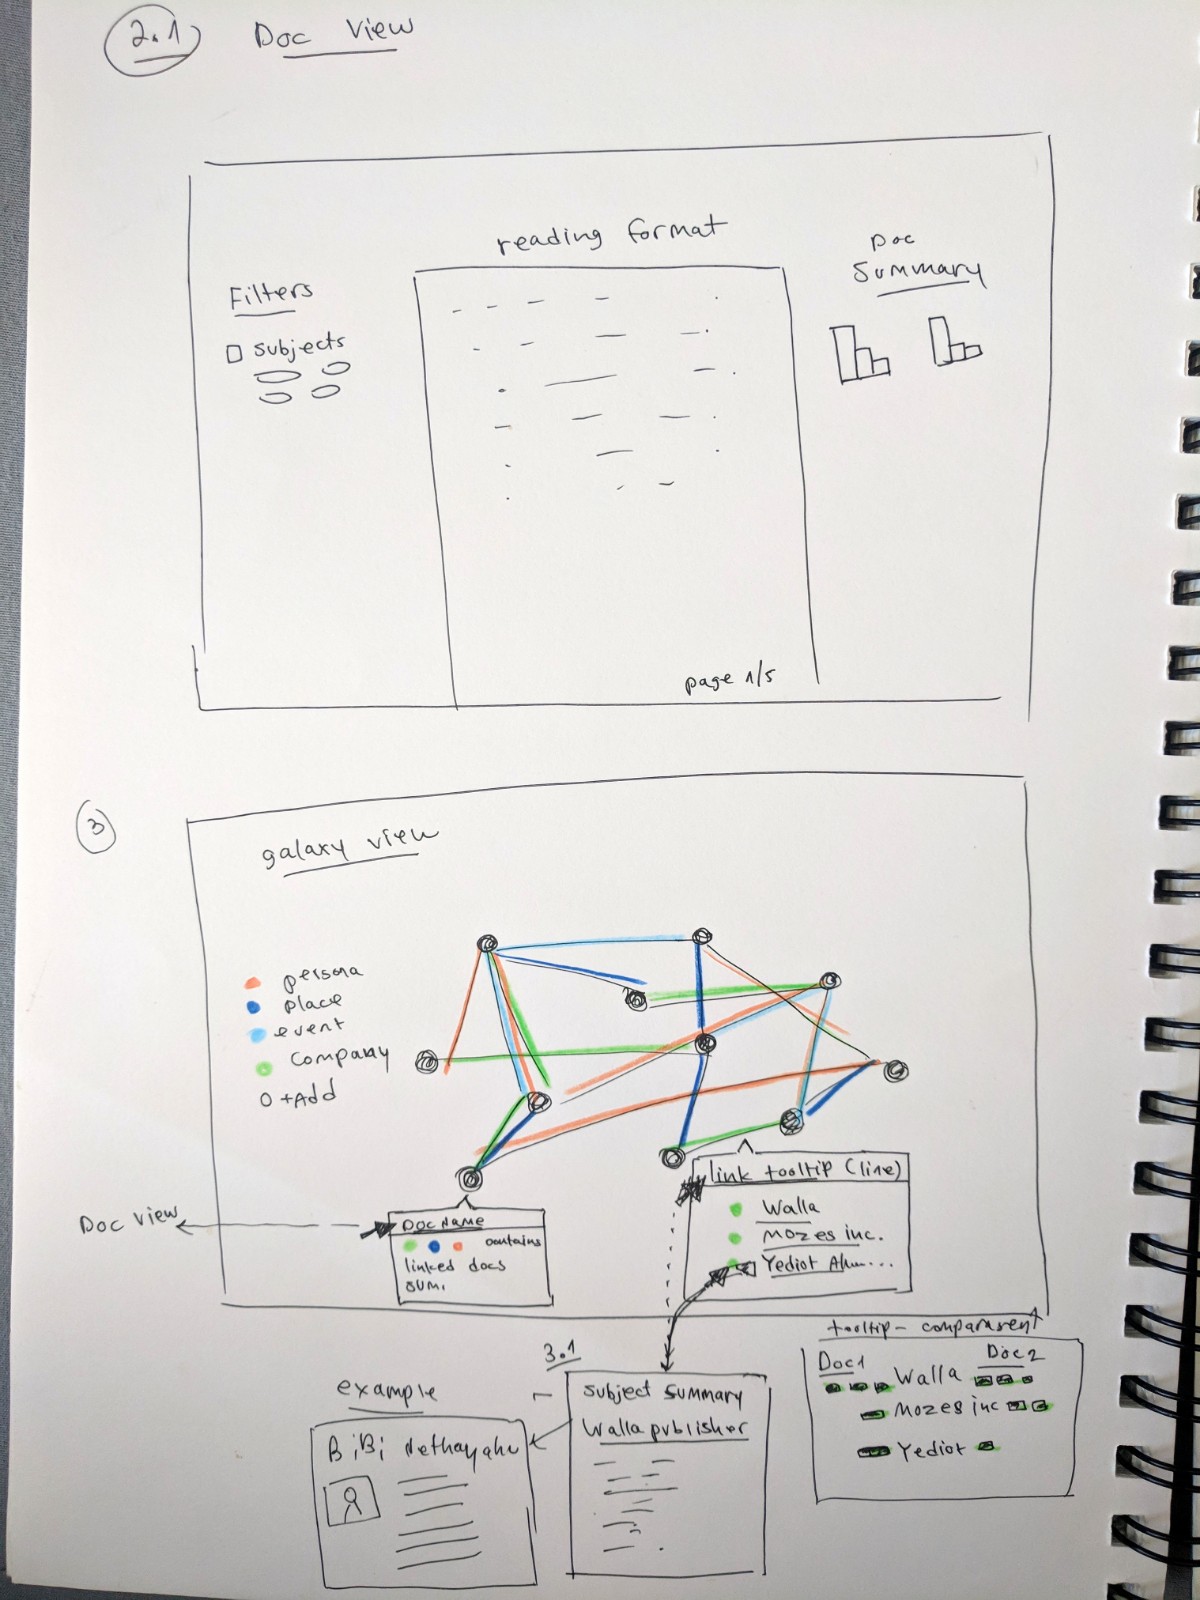 2.1 Doc View
reading format
Doc
Summary
Filters
subjects
page 1/5
3
galaxy view
persona
place
event
Company
+Add
Doc View
Doc Name
contains
linked docs
sum.
link tooltip (line)
Walla
Mozes inc.
Yediot
3.1
subject summary
Walla publisher
example
BiBi
Doc1
Doc2
Walla
Mozes inc
Yediot